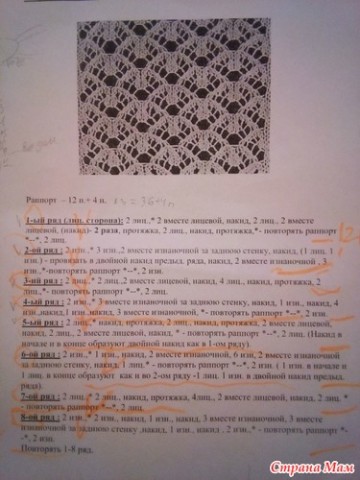 Раппорт – 12 п.+ 4 п.
1-ый ряд (лиц. сторона): 2 лиц.,* 2 вместе лицевой, накид, 2 лиц., 2 вместе
лицевой, (накид)- 2 раза, протяжка, 2 лиц., накид, протяжка,*- повторять раппорт
*--*, 2 лиц.
2-ой ряд : 2 изн.,* 3 изн.,2 вместе изнаночной за заднюю стенку, накид, (1 лиц, 1
изн.) - провязать в двойной накид предыд. ряда, накид, 2 вместе изнаночной , 3
изн.,*-повторять раппорт *--*, 2 изн.
3-ий ряд : 2 лиц.,* 2 лиц.,2 вместе лицевой, накид, 4 лиц., накид, протяжка, 2
лиц.,*- повторять раппорт *--*, 2 лиц.
4-ый ряд : 2 изн.,* 3 вместе изнаночной за заднюю стенку, накид, 1 изн., накид, 4
изн.,накид,1 изн.,накид, 3 вместе изнаночной, *- повторять раппорт *--*, 2 изн.
5-ый ряд : 2 лиц.,* накид, протяжка, 2 лиц., накид, протяжка, 2 вместе лицевой,
накид, 2 лиц., 2 вместе лицевой, накид, * - повторять раппорт *--*, 2 лиц. (Накид в
начале и в конце образуют двойной накид как в 1-ом ряду).
6-ой ряд : 2 изн.,* 1 изн., накид, 2 вместе изнаночной, 6 изн, 2 вместе изнаночной
за заднюю стенку, накид, 1 лиц.* - повторять раппорт *--*, 2 изн. ( 1 изн. в начале и
1 лиц. в конце образуют как и во 2-ом ряду -1 лиц, 1 изн. в двойной накид предыд.
ряда).
7-ой ряд : 2 лиц.,* 2 лиц., накид, протяжка, 4лиц., 2 вместе лицевой, накид, 2 лиц. *
- повторять раппорт *--*, 2 лиц.
8-ой ряд : 2 изн.,* 2 изн., накид, 1 изн., накид, 3 вместе изнаночной, 3 вместе
изнаночной за заднюю стенку ,накид, 1 изн., накид , 2 изн.,* - повторять раппорт *-
-*, 2 изн.
Повторять 1-8 ряд.
Страна Мам